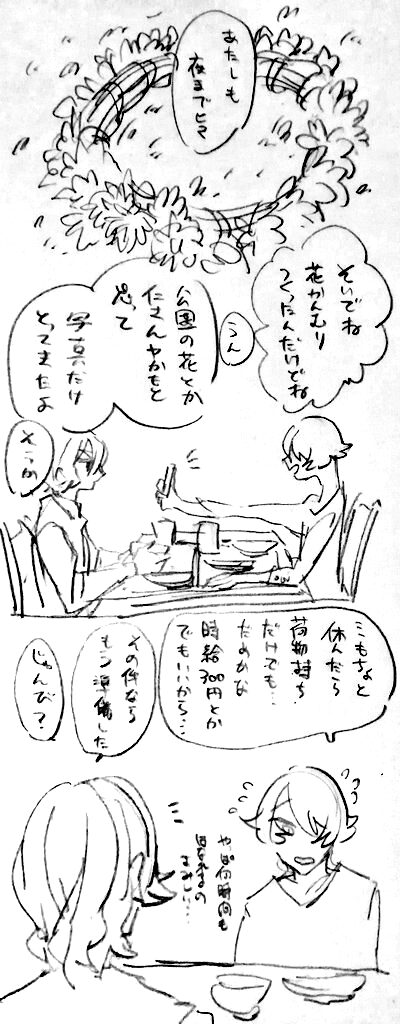 あたしも
夜までヒマ
そいでね
花かんむり
つくったんだけどね
うん
公園の花とか
仁さんヤかもと
思って
写真だけ
とってきたよ
そうか
ちょと
休んだら
荷物持ち
だけでも…
だめかな
時給300円とか
でもいいから…
その件なら
もう準備した
じゅんび?
やっぱ何時間も
はなれるの
さみしい…